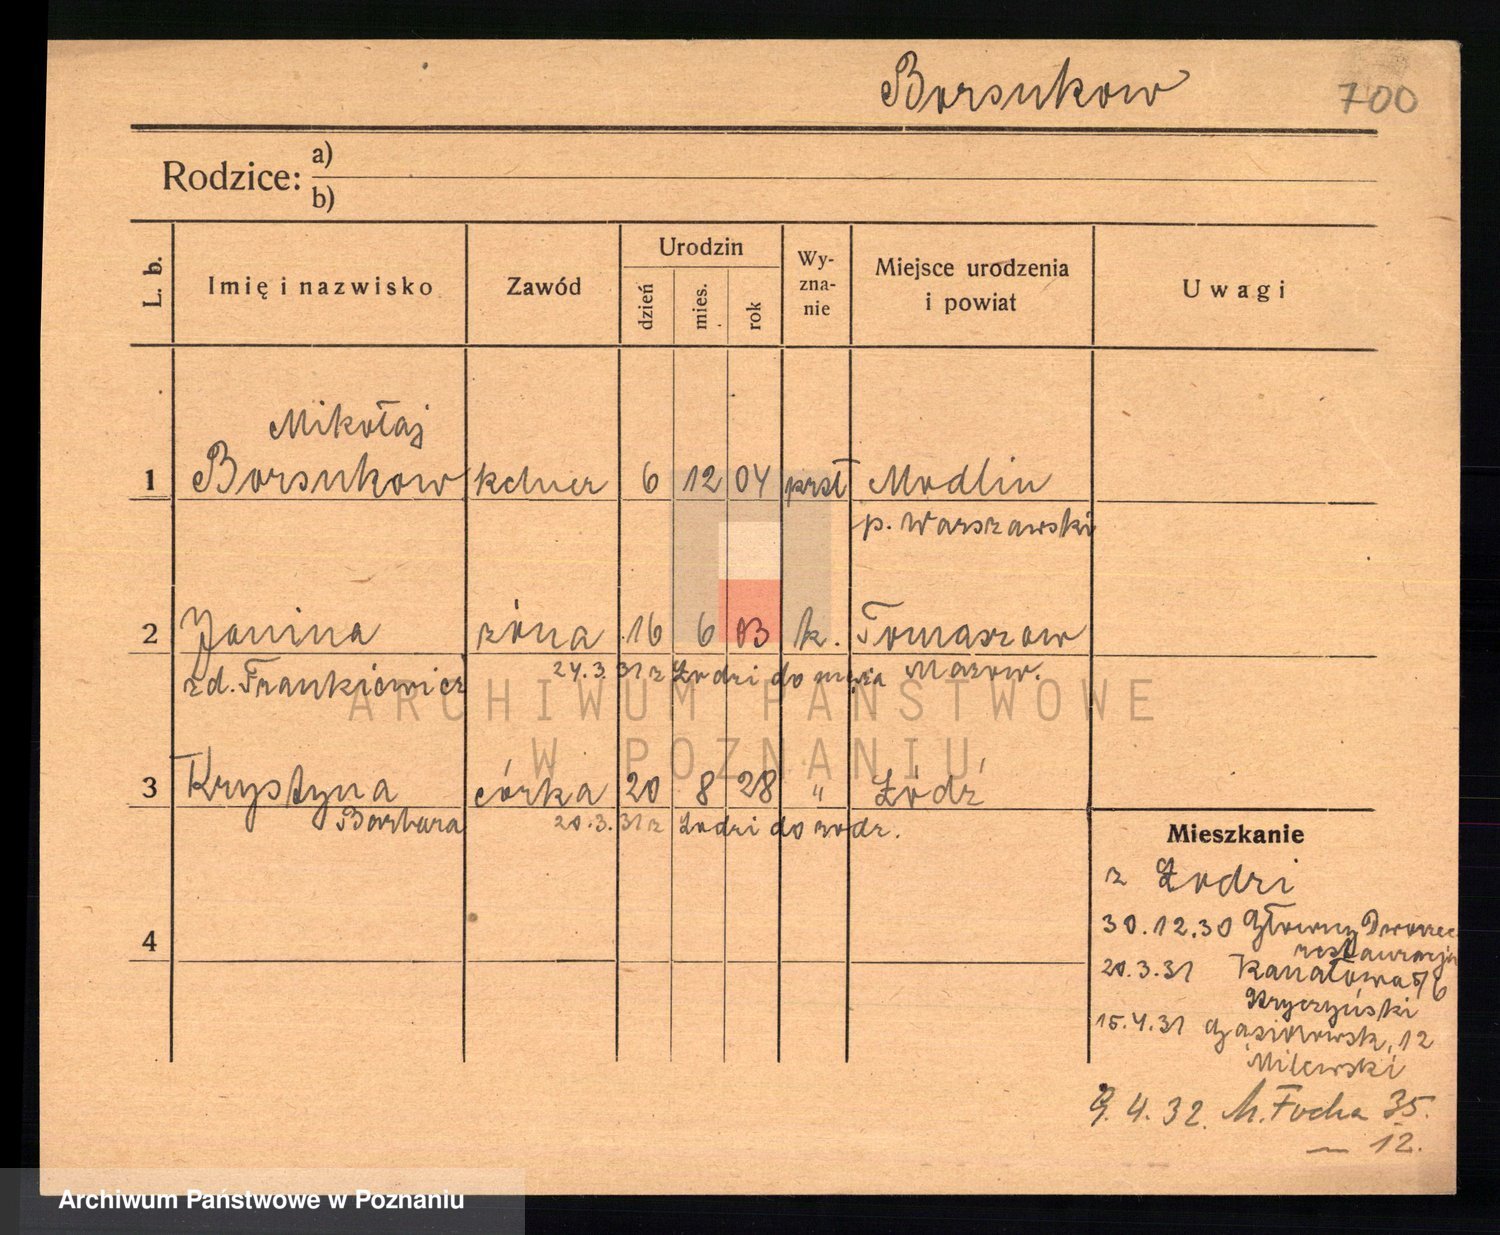 Borsukow 700
Rodzice: a)
b)
L. b. Imię i nazwisko Zawód Urodzin dzień mies. rok Wy-zna-nie Miejsce urodzenia i powiat Uwagi
Mikołaj
1 Borsukow kelner 6 12 04 prsł Modlin
p. Warszawski
2 Janina żona 16 6 03 k. Tomaszow
zd. Frankiewicz 24.3.31 z Łodzi do męża Mazow.
ARCHIWUM PAŃSTWOWE
W POZNANIU
3 Krystyna córka 20 8 28 " Łódź
Barbara 20.3.31 z Łodzi do rodz.
4
Mieszkanie
z Łodzi
30.12.30 Główny Dworzec
restauracja
20.3.31 Kanałowa 5/6
Kryczyński
15.4.31 Gąsiorowsk. 12
Milewski
9.4.32. M. Focha 35.
— 12.
Archiwum Państwowe w Poznaniu